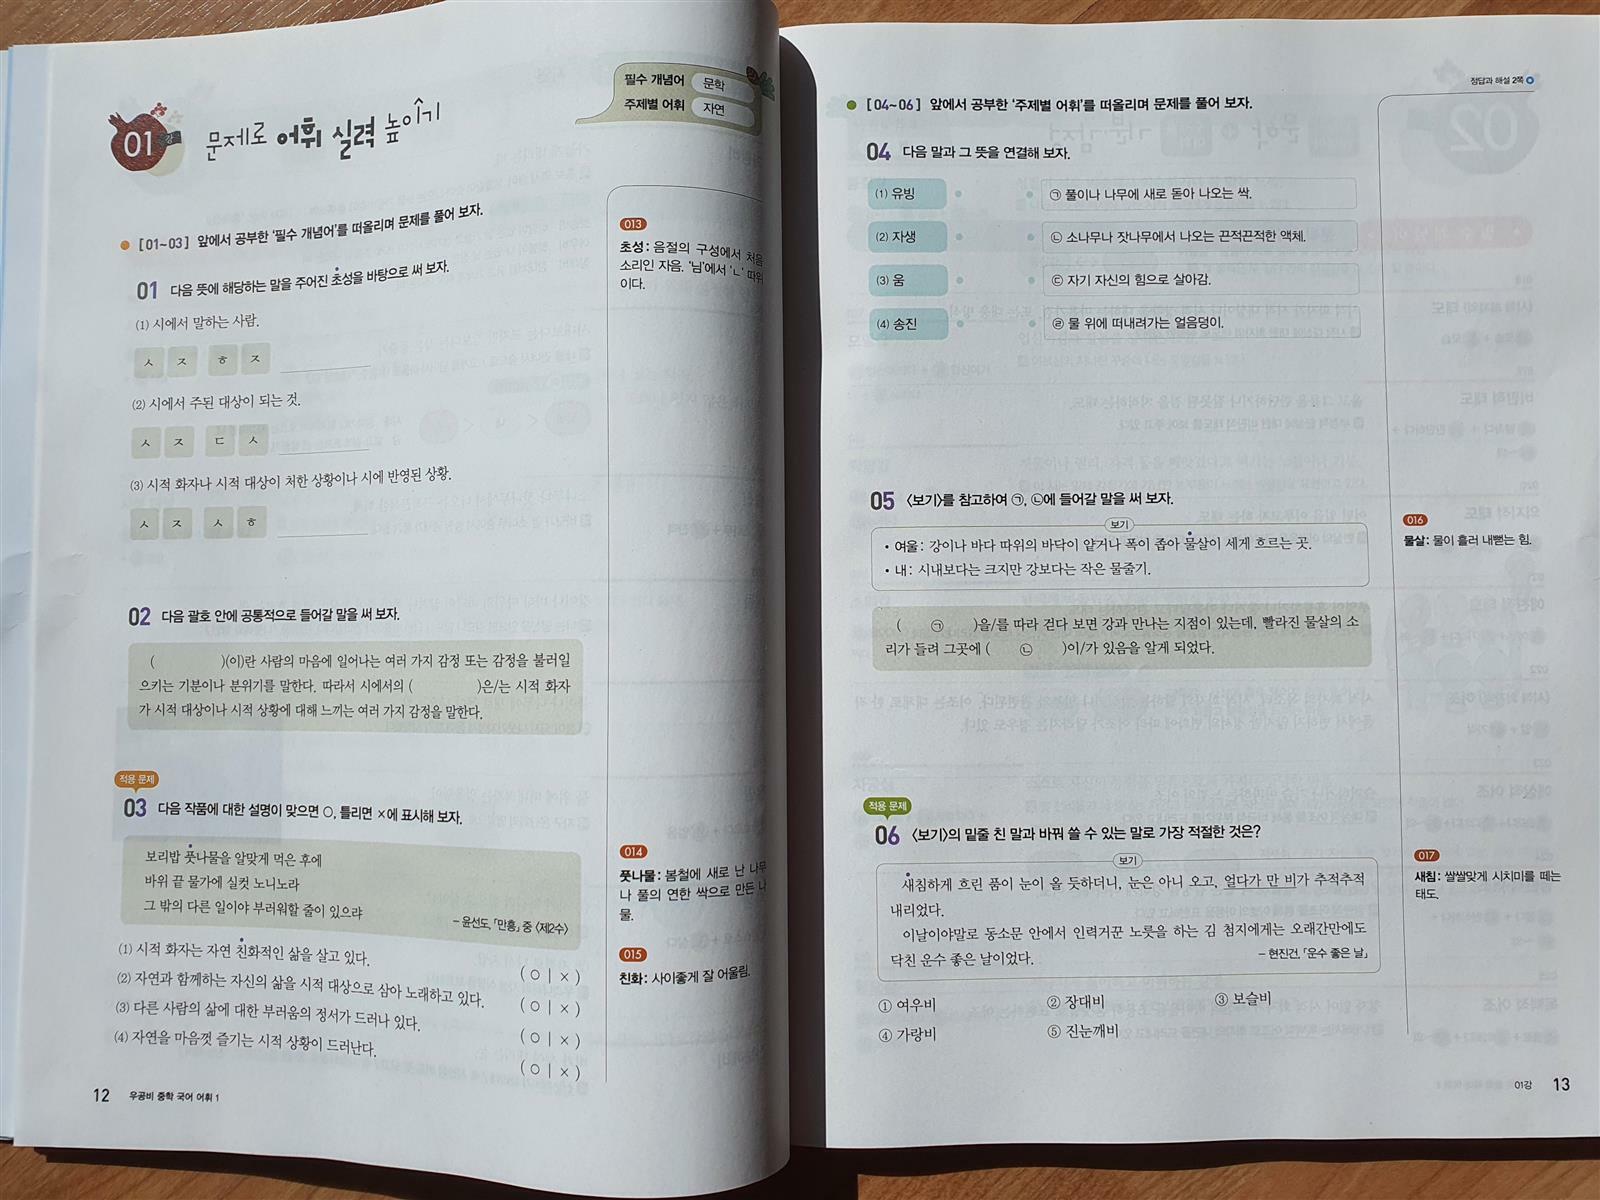 01
문제로 어휘 실력 높이기
필수 개념어 문학
주제별 어휘 자연
[01~03] 앞에서 공부한 '필수 개념어'를 떠올리며 문제를 풀어 보자.
01 다음 뜻에 해당하는 말을 주어진 초성을 바탕으로 써 보자.
(1) 시에서 말하는 사람.
ㅅ ㅈ ㅎ ㅈ
(2) 시에서 주된 대상이 되는 것.
ㅅ ㅈ ㄷ ㅅ
(3) 시적 화자나 시적 대상이 처한 상황이나 시에 반영된 상황.
ㅅ ㅈ ㅅ ㅎ
02 다음 괄호 안에 공통적으로 들어갈 말을 써 보자.
( )(이)란 사람의 마음에 일어나는 여러 가지 감정 또는 감정을 불러일
으키는 기분이나 분위기를 말한다. 따라서 시에서의 ( )은/는 시적 화자
가 시적 대상이나 시적 상황에 대해 느끼는 여러 가지 감정을 말한다.
적용 문제
03 다음 작품에 대한 설명이 맞으면 ○, 틀리면 ×에 표시해 보자.
보리밥 풋나물을 알맞게 먹은 후에
바위 끝 물가에 실컷 노니노라
그 밖의 다른 일이야 부러워할 줄이 있으랴
- 윤선도, 「만흥」 중 〈제2수〉
(1) 시적 화자는 자연 친화적인 삶을 살고 있다. ( ○ | × )
(2) 자연과 함께하는 자신의 삶을 시적 대상으로 삼아 노래하고 있다. ( ○ | × )
(3) 다른 사람의 삶에 대한 부러움의 정서가 드러나 있다. ( ○ | × )
(4) 자연을 마음껏 즐기는 시적 상황이 드러난다. ( ○ | × )
013
초성: 음절의 구성에서 처음
소리인 자음. '님'에서 'ㄴ' 따위
이다.
014
풋나물: 봄철에 새로 난 나무
나 풀의 연한 싹으로 만든 나
물.
015
친화: 사이좋게 잘 어울림.
12 우공비 중학 국어 어휘 1
정답과 해설 2쪽
[04~06] 앞에서 공부한 '주제별 어휘'를 떠올리며 문제를 풀어 보자.
04 다음 말과 그 뜻을 연결해 보자.
(1) 유빙 ㉠ 풀이나 나무에 새로 돋아 나오는 싹.
(2) 자생 ㉡ 소나무나 잣나무에서 나오는 끈적끈적한 액체.
(3) 움 ㉢ 자기 자신의 힘으로 살아감.
(4) 송진 ㉣ 물 위에 떠내려가는 얼음덩이.
05 〈보기〉를 참고하여 ㉠, ㉡에 들어갈 말을 써 보자.
보기
• 여울: 강이나 바다 따위의 바닥이 얕거나 폭이 좁아 물살이 세게 흐르는 곳.
• 내: 시내보다는 크지만 강보다는 작은 물줄기.
( ㉠ )을/를 따라 걷다 보면 강과 만나는 지점이 있는데, 빨라진 물살의 소
리가 들려 그곳에 ( ㉡ )이/가 있음을 알게 되었다.
적용 문제
06 〈보기〉의 밑줄 친 말과 바꿔 쓸 수 있는 말로 가장 적절한 것은?
보기
새침하게 흐린 품이 눈이 올 듯하더니, 눈은 아니 오고, 얼다가 만 비가 추적추적
내리었다.
이날이야말로 동소문 안에서 인력거꾼 노릇을 하는 김 첨지에게는 오래간만에도
닥친 운수 좋은 날이었다. - 현진건, 「운수 좋은 날」
① 여우비 ② 장대비 ③ 보슬비
④ 가랑비 ⑤ 진눈깨비
016
물살: 물이 흘러 내뻗는 힘.
017
새침: 쌀쌀맞게 시치미를 떼는
태도.
01강 13